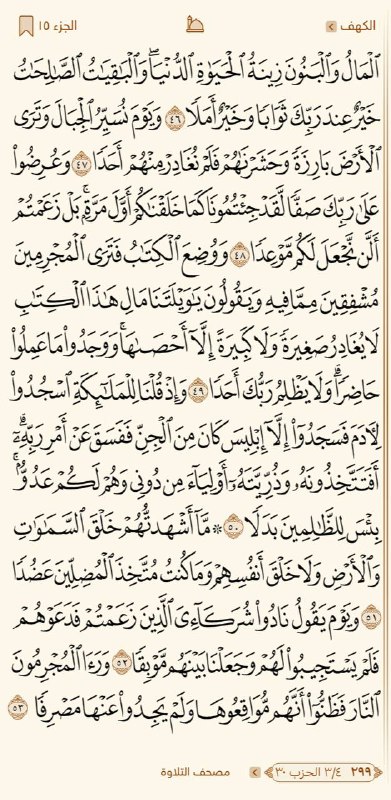 الكهف
الجزء ١٥
ٱلْمَالُ وَٱلْبَنُونَ زِينَةُ ٱلْحَيَوٰةِ ٱلدُّنْيَاۖ وَٱلْبَٰقِيَٰتُ ٱلصَّٰلِحَٰتُ
خَيْرٌ عِندَ رَبِّكَ ثَوَابًا وَخَيْرٌ أَمَلًا ٤٦ وَيَوْمَ نُسَيِّرُ ٱلْجِبَالَ وَتَرَى
ٱلْأَرْضَ بَارِزَةً وَحَشَرْنَٰهُمْ فَلَمْ نُغَادِرْ مِنْهُمْ أَحَدًا ٤٧ وَعُرِضُوا۟
عَلَىٰ رَبِّكَ صَفًّا لَّقَدْ جِئْتُمُونَا كَمَا خَلَقْنَٰكُمْ أَوَّلَ مَرَّةٍۭۚ بَلْ زَعَمْتُمْ
أَلَّن نَّجْعَلَ لَكُم مَّوْعِدًا ٤٨ وَوُضِعَ ٱلْكِتَٰبُ فَتَرَى ٱلْمُجْرِمِينَ
مُشْفِقِينَ مِمَّا فِيهِ وَيَقُولُونَ يَٰوَيْلَتَنَا مَالِ هَٰذَا ٱلْكِتَٰبِ
لَا يُغَادِرُ صَغِيرَةً وَلَا كَبِيرَةً إِلَّآ أَحْصَىٰهَاۚ وَوَجَدُوا۟ مَا عَمِلُوا۟
حَاضِرًاۗ وَلَا يَظْلِمُ رَبُّكَ أَحَدًا ٤٩ وَإِذْ قُلْنَا لِلْمَلَٰٓئِكَةِ ٱسْجُدُوا۟
لِـَٔادَمَ فَسَجَدُوٓا۟ إِلَّآ إِبْلِيسَ كَانَ مِنَ ٱلْجِنِّ فَفَسَقَ عَنْ أَمْرِ رَبِّهِۦٓۗ
أَفَتَتَّخِذُونَهُۥ وَذُرِّيَّتَهُۥٓ أَوْلِيَآءَ مِن دُونِى وَهُمْ لَكُمْ عَدُوٌّۢۚ
بِئْسَ لِلظَّٰلِمِينَ بَدَلًا ٥٠ ۞ مَّآ أَشْهَدتُّهُمْ خَلْقَ ٱلسَّمَٰوَٰتِ
وَٱلْأَرْضِ وَلَا خَلْقَ أَنفُسِهِمْ وَمَا كُنتُ مُتَّخِذَ ٱلْمُضِلِّينَ عَضُدًا
٥١ وَيَوْمَ يَقُولُ نَادُوا۟ شُرَكَآءِىَ ٱلَّذِينَ زَعَمْتُمْ فَدَعَوْهُمْ
فَلَمْ يَسْتَجِيبُوا۟ لَهُمْ وَجَعَلْنَا بَيْنَهُم مَّوْبِقًا ٥٢ وَرَءَا ٱلْمُجْرِمُونَ
ٱلنَّارَ فَظَنُّوٓا۟ أَنَّهُم مُّوَاقِعُوهَا وَلَمْ يَجِدُوا۟ عَنْهَا مَصْرِفًا ٥٣
٢٩٩
٣/٤ الحزب ٣٠
مصحف التلاوة